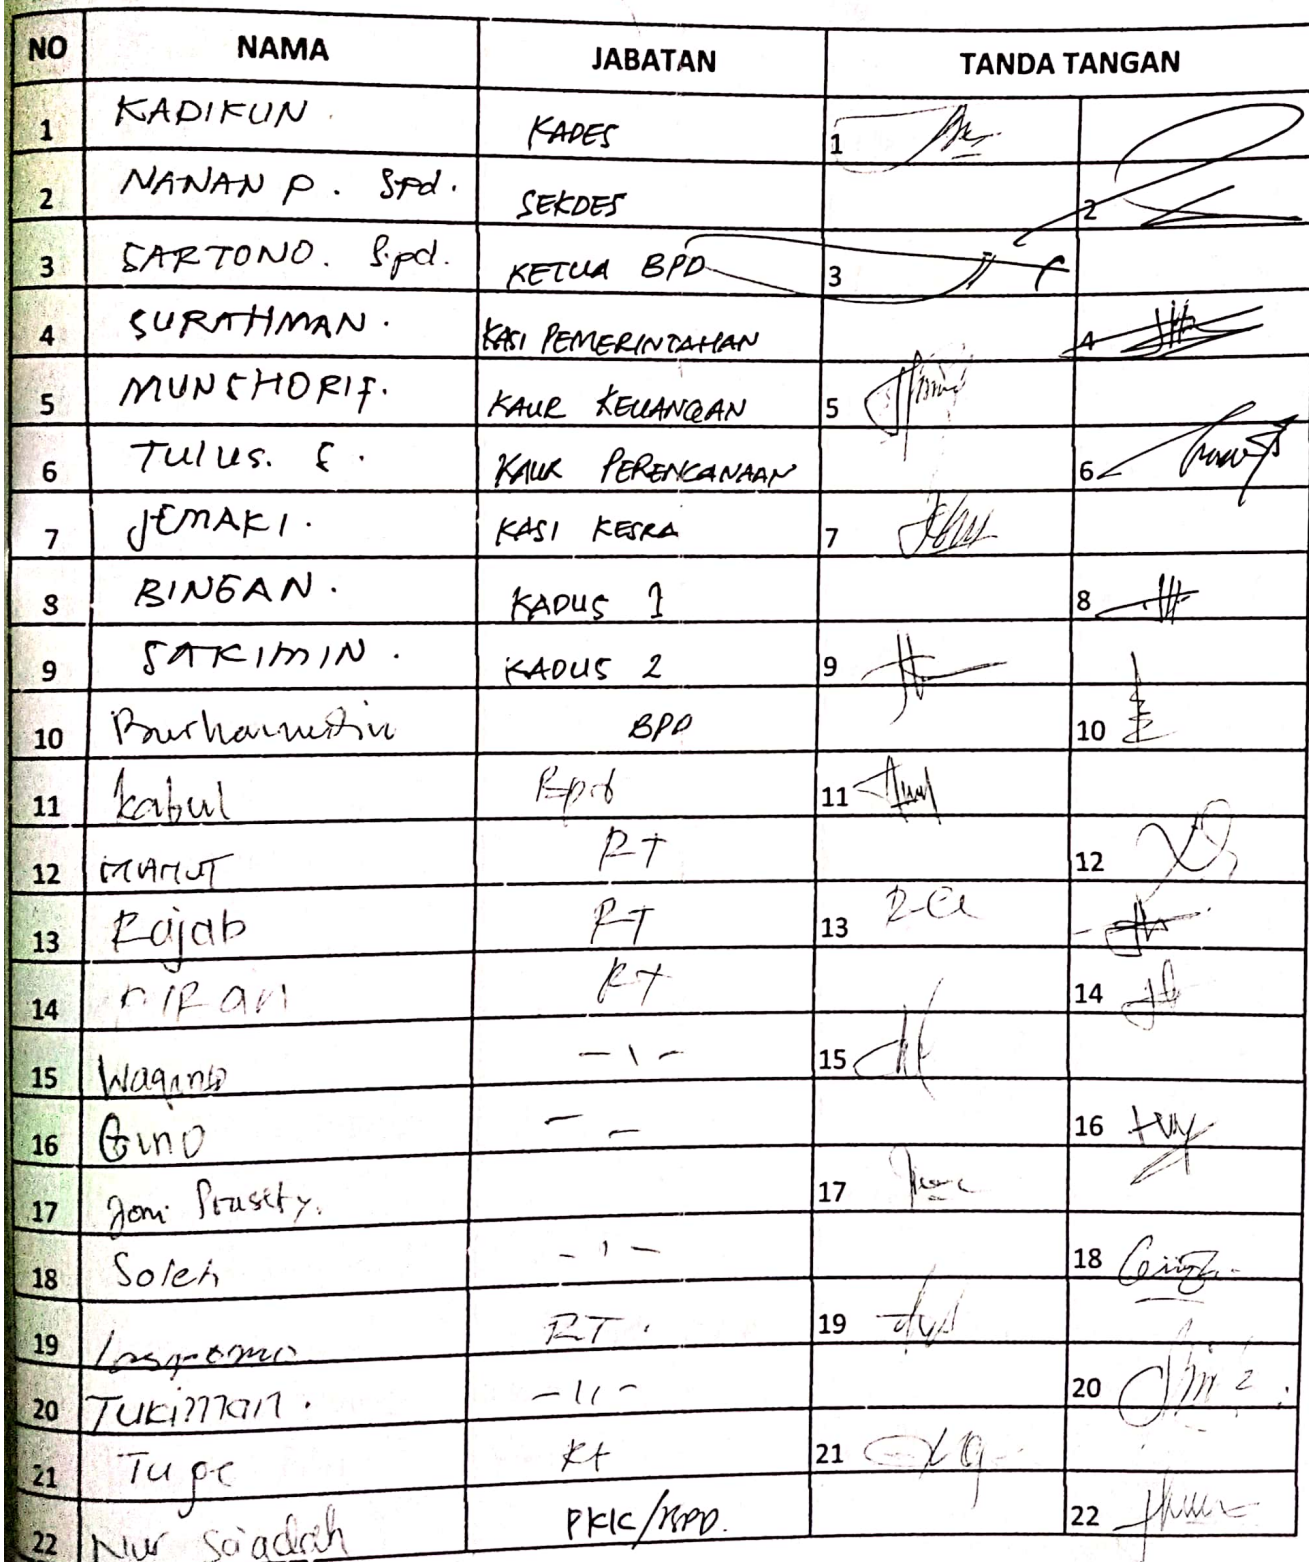 NO NAMA JABATAN TANDA TANGAN
1 KADIKUN KADES 1
2 NANAN P. Spd. SEKDES 2
3 SARTONO. S.pd. KETUA BPD 3
4 SURAHMAN. KASI PEMERINTAHAN 4
5 MUNSHORIF. KAUR KEUANGAN 5
6 TULUS. S. KAUR PERENCANAAN 6
7 JEMAKI. KASI KESRA 7
8 BINGAN. KADUS 1 8
9 SAKIMIN. KADUS 2 9
10 Burhanudin BPD 10
11 Kabul Bpd 11
12 RT 12
13 Rajab RT 13
14 RT 14
15 - \ - 15
16 Gino - - 16
17 Joni Prasety. 17
18 Soleh - ı - 18
19 RT. 19
20 TUKIMAN. - 11 - 20
21 Rt 21
22 Nur Sa'adah PKK/BPD. 22